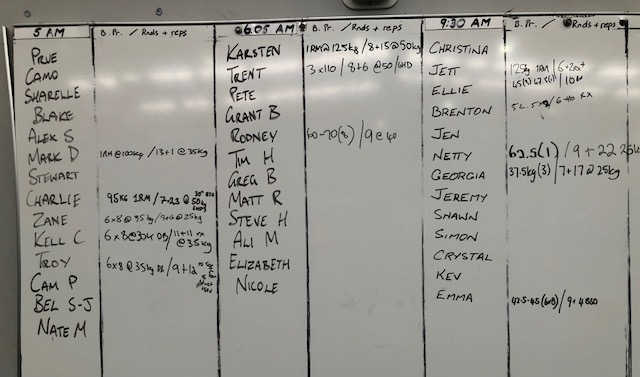 5 AM B. Pr. / Rnds + reps
PRUE
CAMO
SHARELLE
BLAKE
ALEX S
MARK D 1RM@100kg / 13+1 @ 35kg
STEWART
CHARLIE 95KG 1RM / 7+23 @ 50kg
ZANE 6x8 @ 35kg / 9+6 @ 25kg
KELL C 6x8@30k DB / 11+11 rx @ 35kg
TROY 6x8 @ 35kg DB / 9+12
CAM P
BEL S-J
NATE M
6.05 AM B. Pr. / Rnds + reps
KARSTEN 1RM@125kg / 8+15@50kg
TRENT 3x110 / 8+6 @50/GHD
PETE
GRANT B
RODNEY 60-70(8) / 9 @ 40
TIM H
GREG B
MATT R
STEVE H
ALI M
ELIZABETH
NICOLE
9:30 AM B. Pr. / Rnds + reps
CHRISTINA
JETT 125kg 1RM / 6+
ELLIE
BRENTON
JEN
NETTY 62.5(1) / 9 + 22 25k
GEORGIA 37.5kg (3) / 7+17 @ 25kg
JEREMY
SHAWN
SIMON
CRYSTAL
KEV
EMMA 42.5-45 / 9+